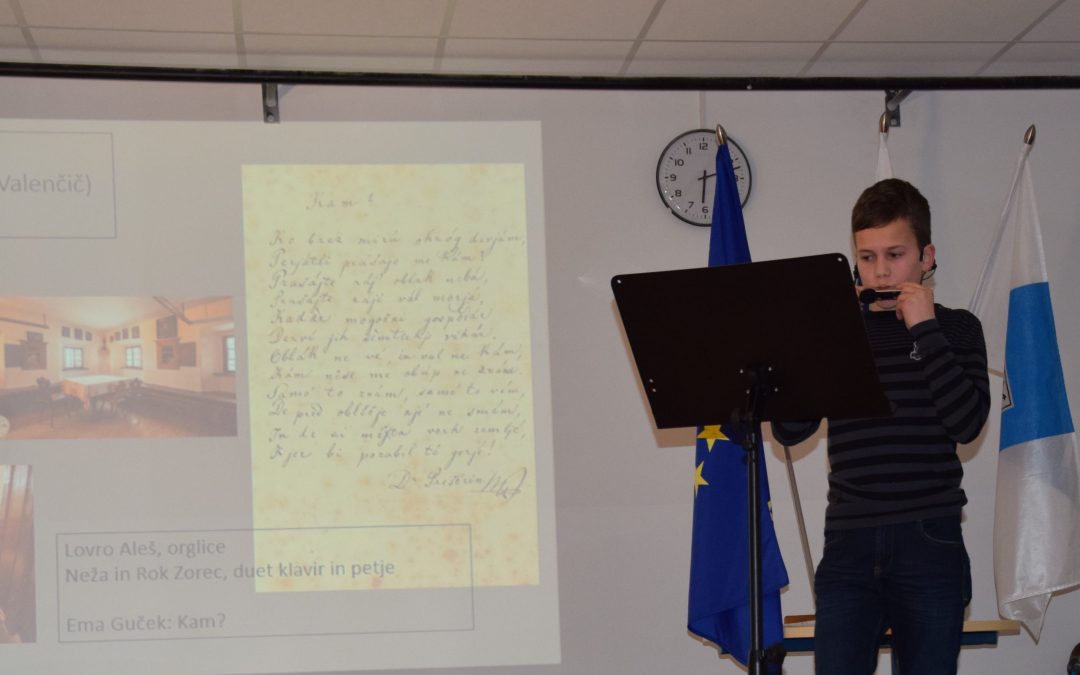 Valenčič)
Kam?
Ko brez mirú okróg divjám,
Perjatli prašajo me kám?
Prašajte ráj oblak nebá,
Prašajte raji val morjá,
Kadar mogočni gospodár
Derví jih vihár.
Oblák ne vé, in val ne kám,
Kám nêse me obúp ne znám.
Samó to znám, samó to vém,
De pred obličje njé ne smém,
In de ni mésta verh zemljé,
Kjer bi pozabil tó gorjé!
Dr. Prešerin
Lovro Aleš, orglice
Neža in Rok Zorec, duet klavir in petje
Ema Guček: Kam?
12
11
10
9
8
7
6